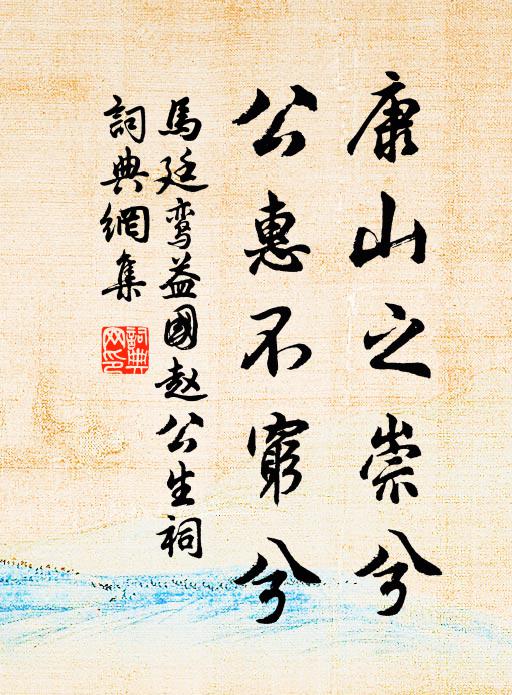 康山之崇兮
公惠不窮兮
馬廷鸾益國赵公生祠
詞典網集
詞典
网印